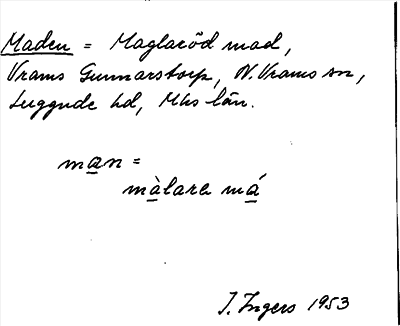 Maden = Maglaröd mad,
Vrams Gunnarstorp, N. Vrams sn,
Luggude hd, Mhs län.
man =
màlare má
I. Ingers 1953